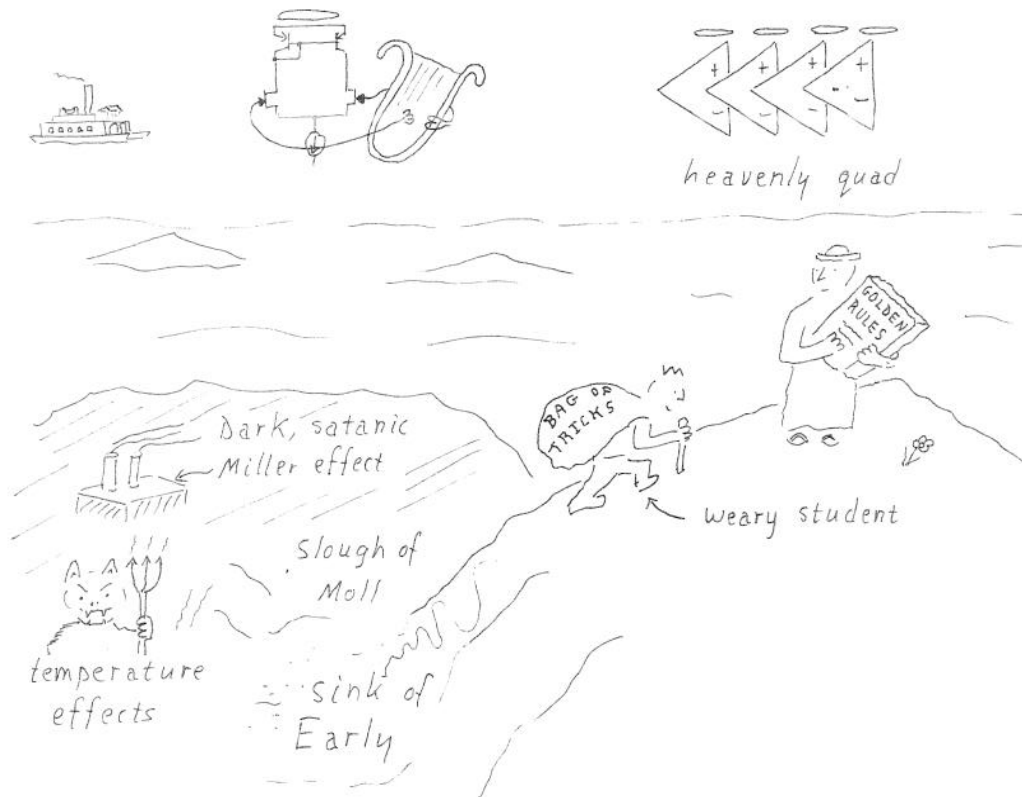 + + + +
- - - -
heavenly quad
GOLDEN
RULES
BAG OF
TRICKS
Dark, satanic
Miller effect
weary student
slough of
Moll
temperature
effects
sink of
Early